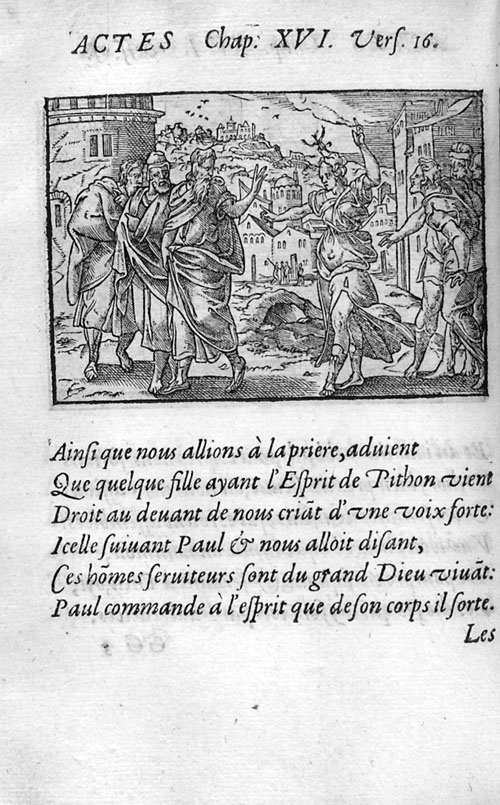 ACTES Chap. XVI. Verſ. 16.
Ainſi que nous allions à la priere, aduient
Que quelque fille ayant l'Eſprit de Pithon vient
Droit au deuant de nous criāt d'vne voix forte:
Icelle ſuiuant Paul & nous alloit diſant,
Ces hōmes ſeruiteurs ſont du grand Dieu viuāt:
Paul commande à l'eſprit que de ſon corps il ſorte.
Les